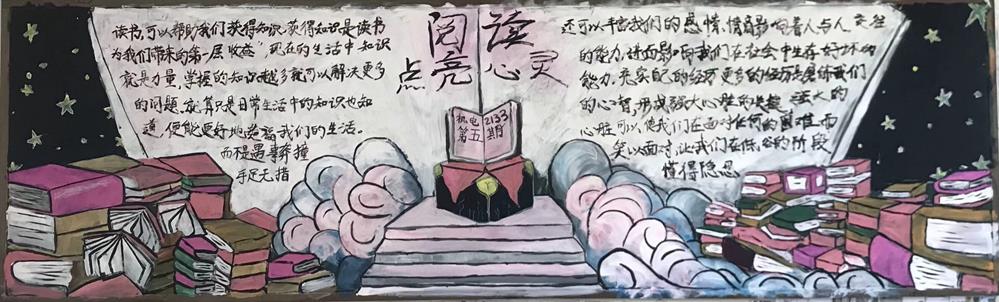 阅读
点亮心灵
读书,可以帮助我们获得知识,获得知识是读书
为我们带来的第一层收益,现在的生活中知识
就是力量,掌握的知识越多就可以解决更多
的问题,就算只是日常生活中的知识也知
道,便能更好地造福我们的生活。
而不是遇事莽撞
手足无措
机电2133
第五期
还可以丰富我们的感情,情商影响着人与人交往
的能力,进而影响我们在社会中生存好坏的
能力,充实自己的经历更多的经历去磨练我们
的心智,形成强大心脏的 强大的
心脏可以使我们在面对任何的困难而
笑以面对,让我们在低谷的阶段
懂得隐忍